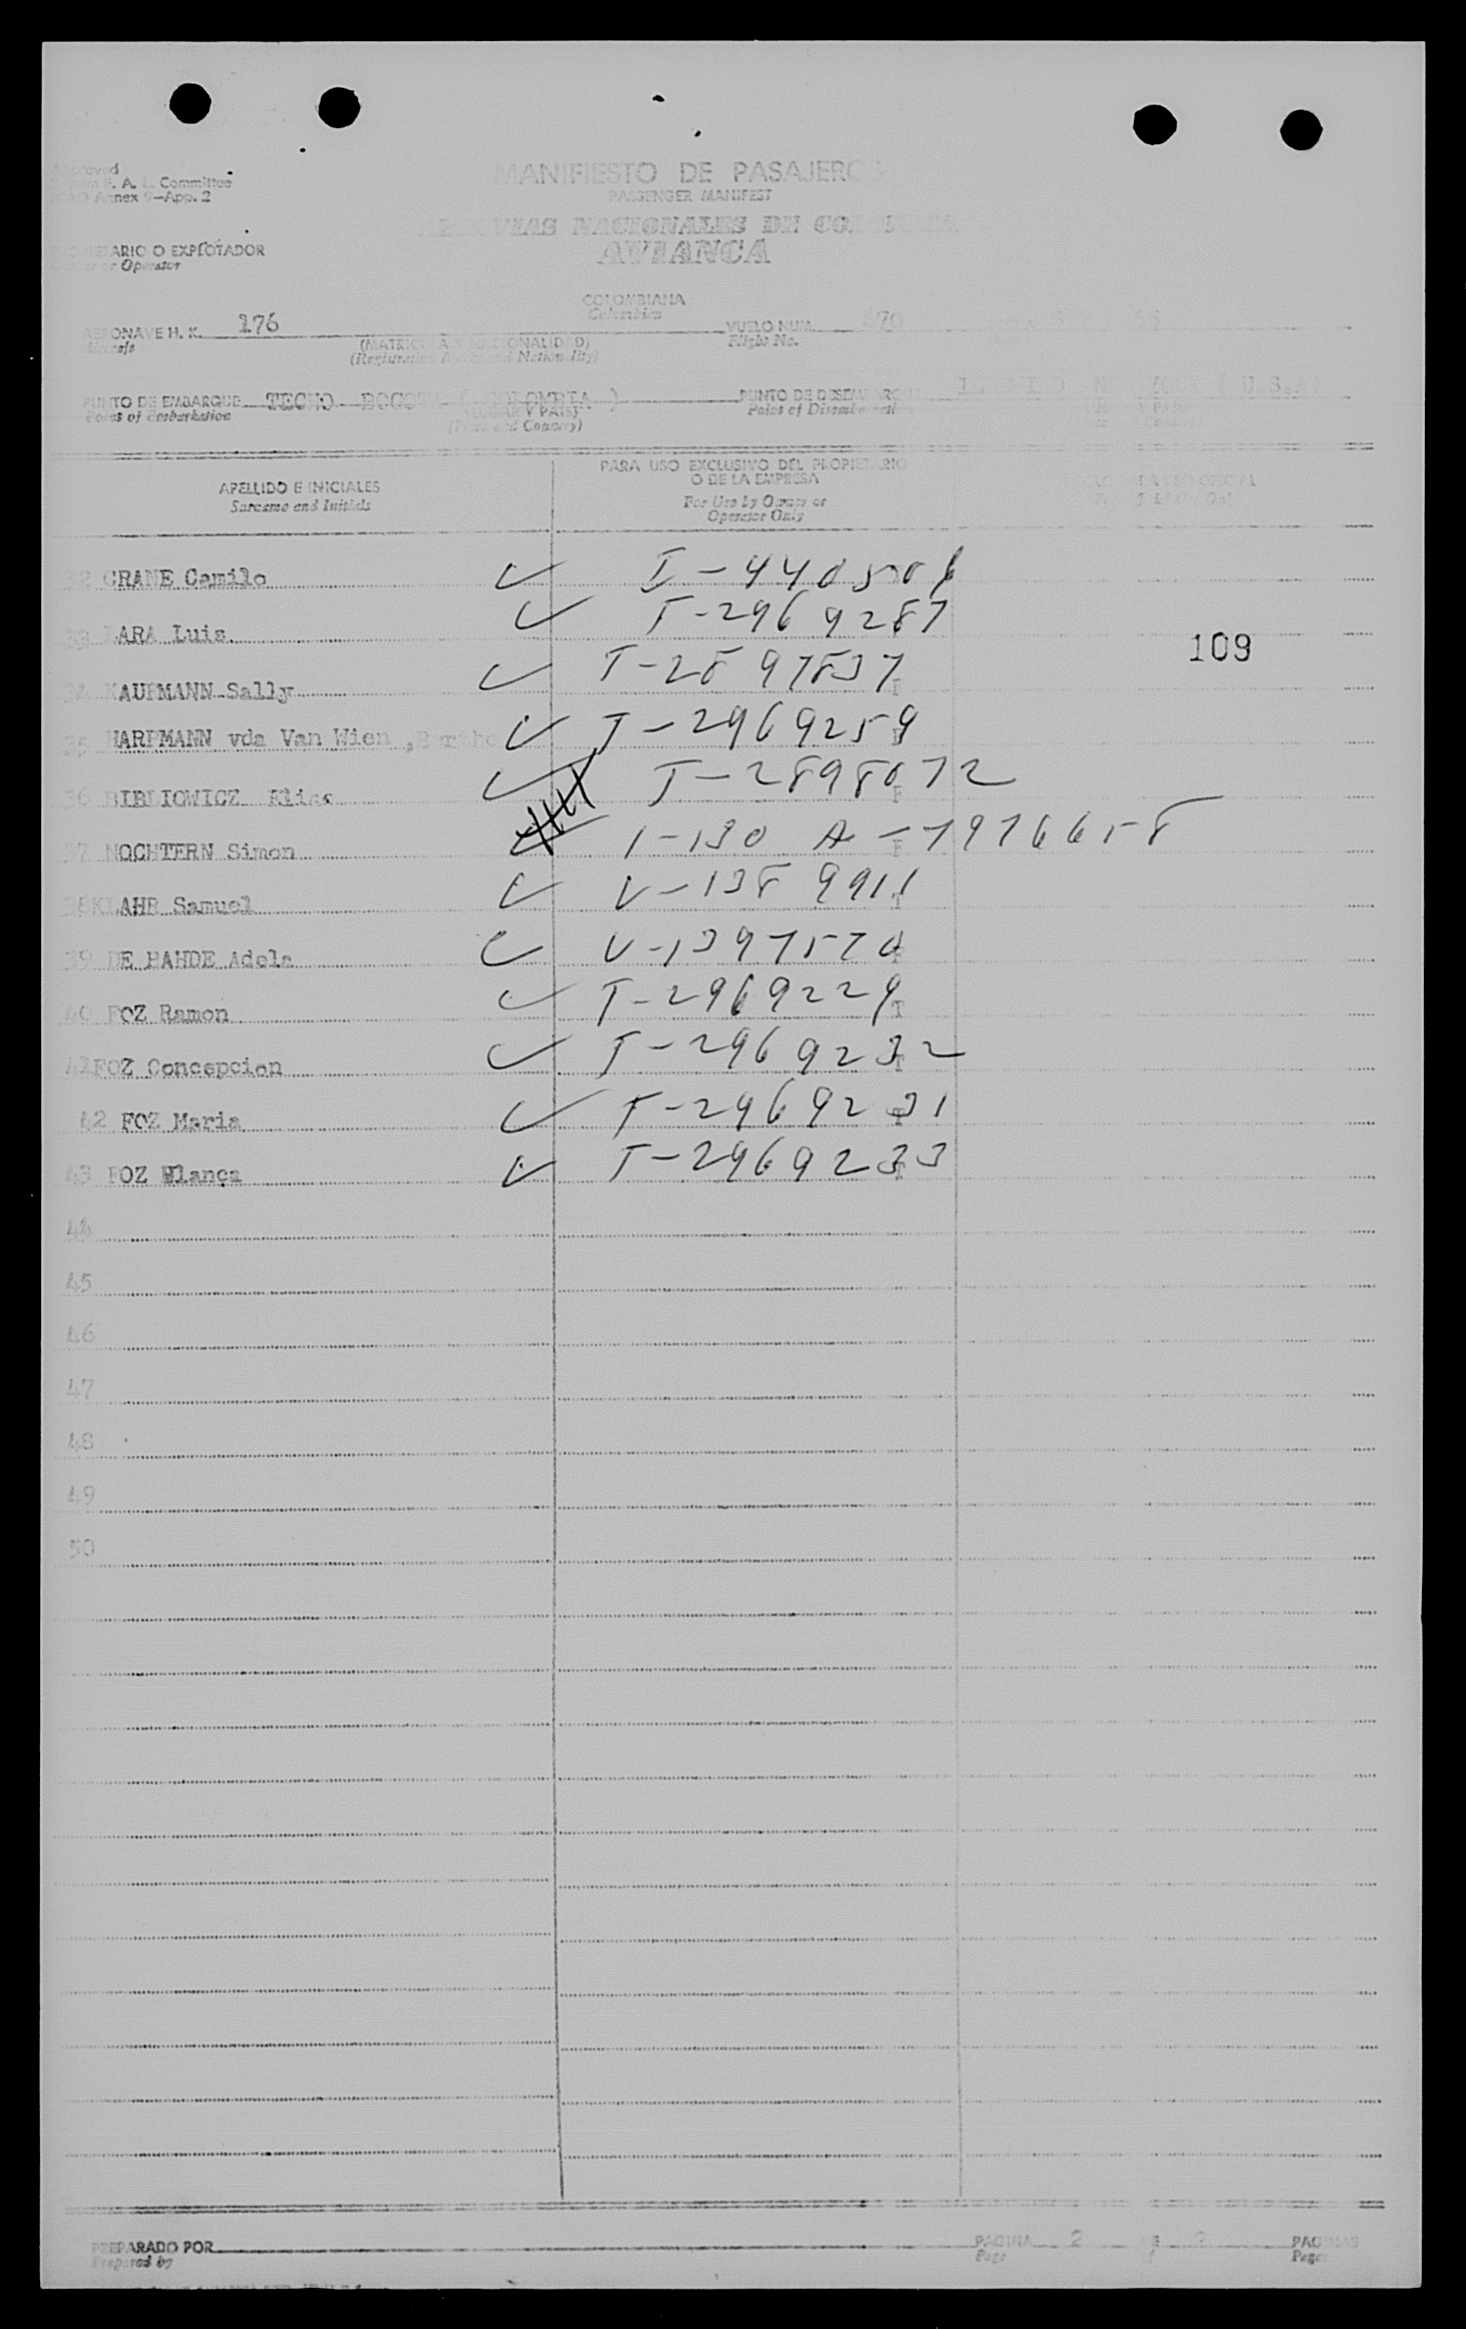 Committee
Annex 9—App. 2
MANIFIESTO DE PASAJEROS
PASSENGER MANIFEST
NACIONALES DE
AVIANCA
O EXPLOTADOR
or Operator
COLOMBIANA
Colombian
H. K. 176
VUELO NUM. 670
Flight No.
(Registration and Nationality)
PUNTO DE EMBARQUE TECHO BOGOTA ( COLOMBIA )
Point of Embarkation
Y PAIS)
and Country)
PUNTO DE
Point of
U.S.A
APELLIDO E INICIALES
Surname and Initials
PARA USO EXCLUSIVO DEL PROPIETARIO
O DE LA EMPRESA
For Use by Owner or
Operator Only
32 CRANE Camilo I-440506
33 LARA Luis T-2969287
109
34 KAUFMANN Sally T-2897837
35 HARPMANN vda Van Wien , T-2969259
36 BIBLIOWICZ Elias T-2898072
37 NOCHTERN Simon I-130 A-7976658
38 KLAHR Samuel V-1389911
39 DE HAHDE Adela V-1397570
40 FOZ Ramon T-2969229
41 FOZ Concepcion T-2969232
42 FOZ Maria T-2969231
43 FOZ Blanca T-2969233
44
45
46
47
48
49
50
PREPARADO POR
Prepared by
PAGINA 2 DE 2 PAGINAS
Page of Pages